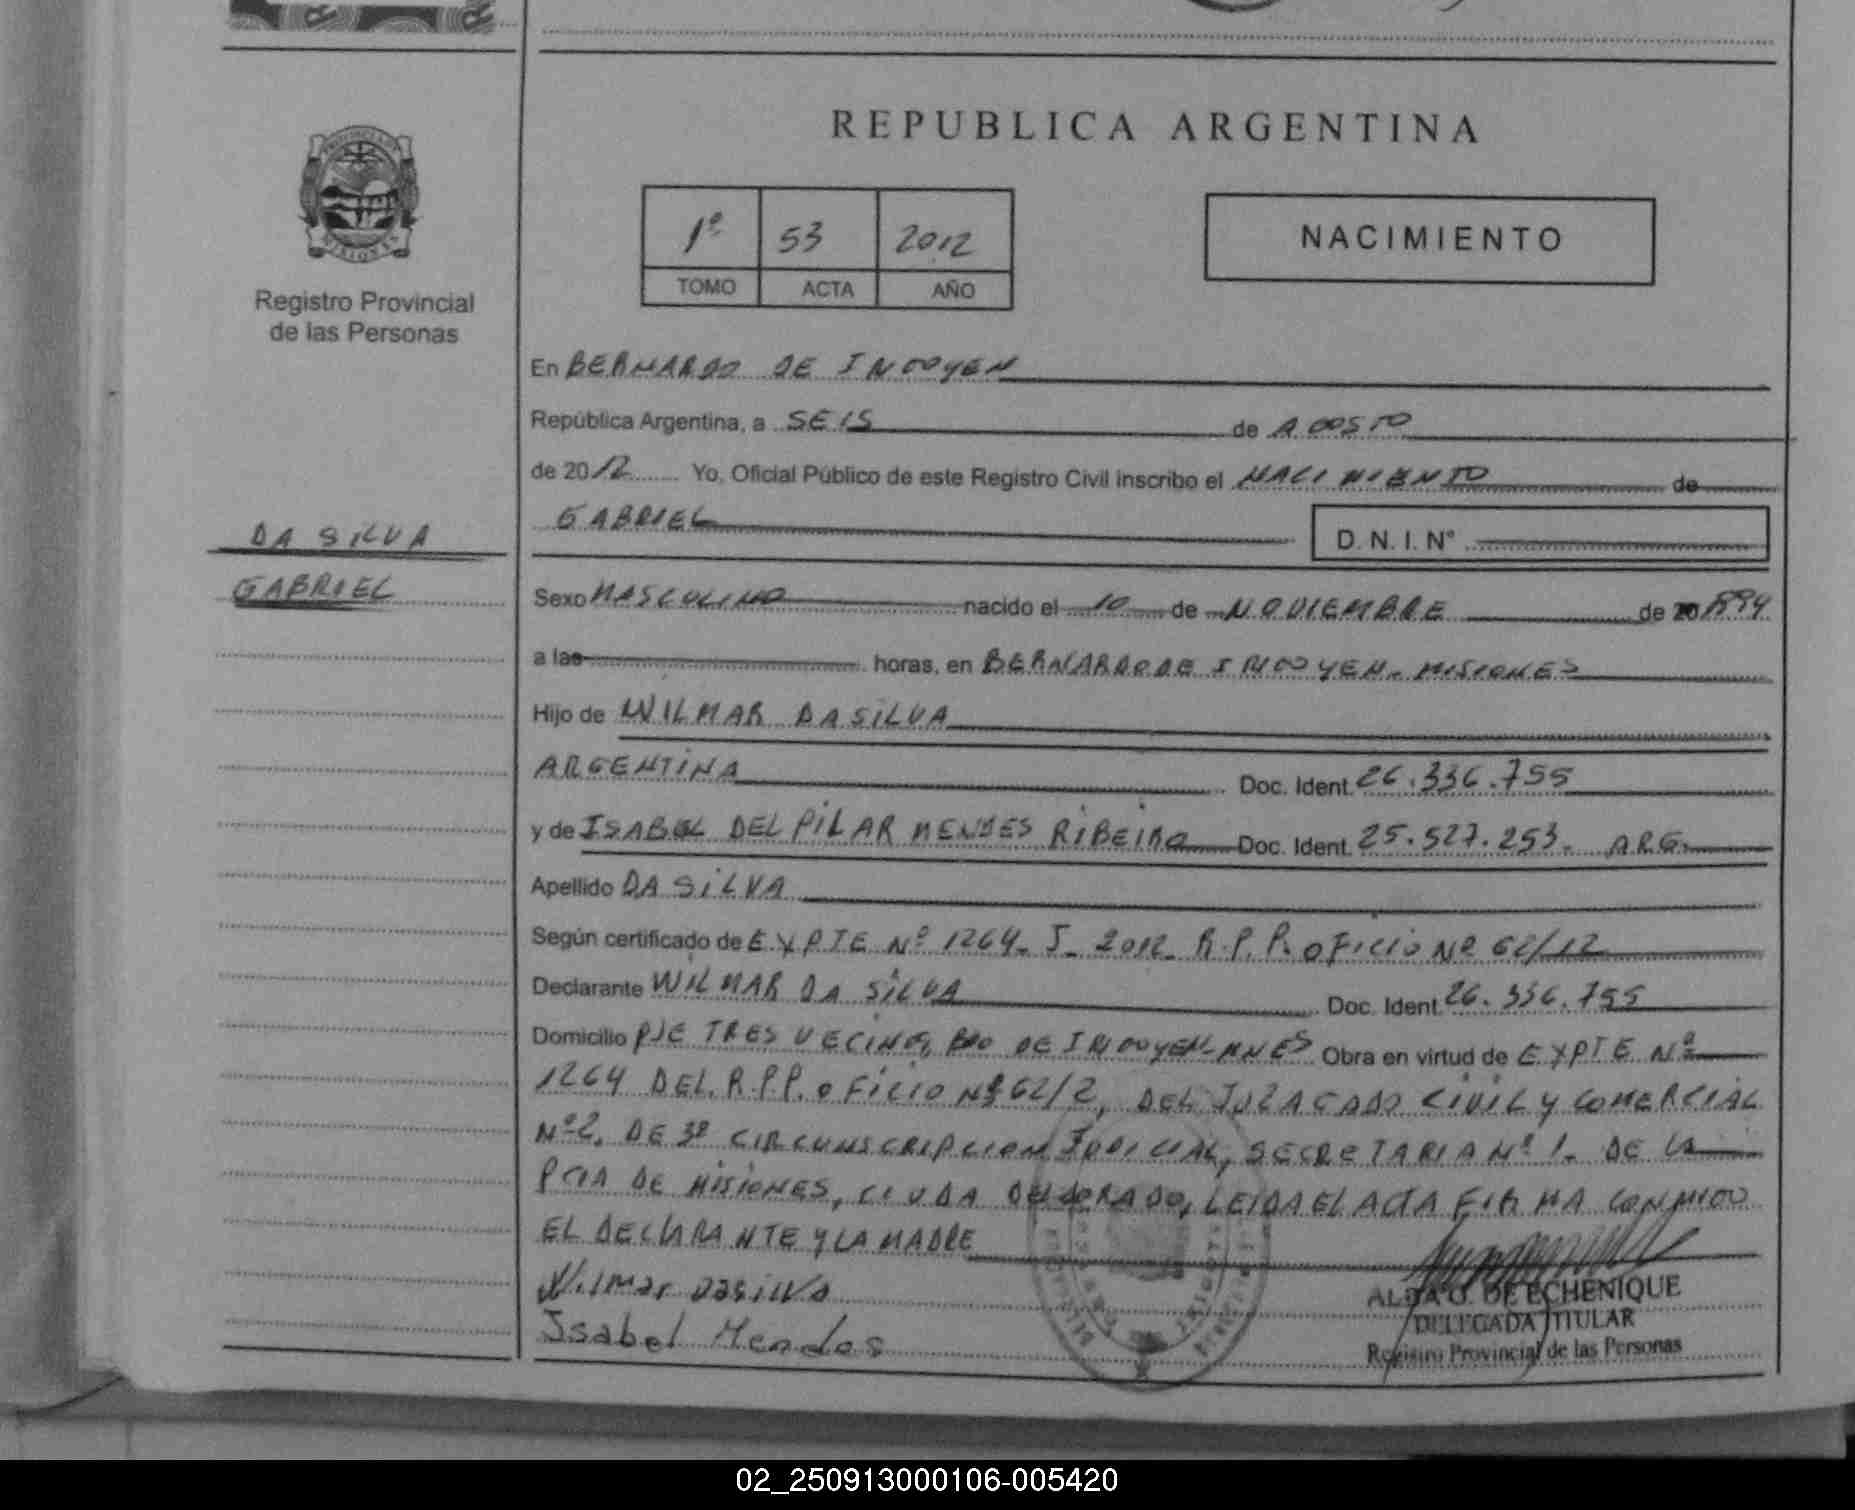 REPUBLICA ARGENTINA
1º 53 2012
TOMO ACTA AÑO
NACIMIENTO
Registro Provincial
de las Personas
DA SILVA
GABRIEL
En BERNARDO DE IRIGOYEN
República Argentina, a SEIS de AGOSTO
de 2012 Yo, Oficial Público de este Registro Civil inscribo el NACIMIENTO de
GABRIEL D.N.I. Nº
Sexo MASCULINO nacido el 10 de NOVIEMBRE de 1994
a las horas, en BERNARDO DE IRIGOYEN - MISIONES
Hijo de WILMAR DA SILVA
ARGENTINA Doc. Ident. 26.336.755
y de ISABEL DEL PILAR MENDES RIBEIRO Doc. Ident. 25.527.253. ARG.
Apellido DA SILVA
Según certificado de EXPTE Nº 1264- J- 2012- R.P.P. OFICIO Nº 62/12
Declarante WILMAR DA SILVA Doc. Ident. 26.336.755
Domicilio PJE TRES VECINOS, BDO DE IRIGOYEN-MNES Obra en virtud de EXPTE Nº
1264 DEL R.P.P. OFICIO Nº 62/2, DEL JUZAGADO CIVIL Y COMERCIAL
Nº 2. DE 3º CIRCUNSCRIPCION JUDICIAL, SECRETARIA Nº 1- DE LA
PCIA DE MISIONES, CIUDA DELDORADO, LEIDA EL ACTA FIRMA CONMIGO
EL DECLARANTE Y LA MADRE
Wilmar Dasilva
Isabel Mendes
ALBA G. DE ECHENIQUE
DELEGADA TITULAR
Registro Provincial de las Personas
02_250913000106-005420